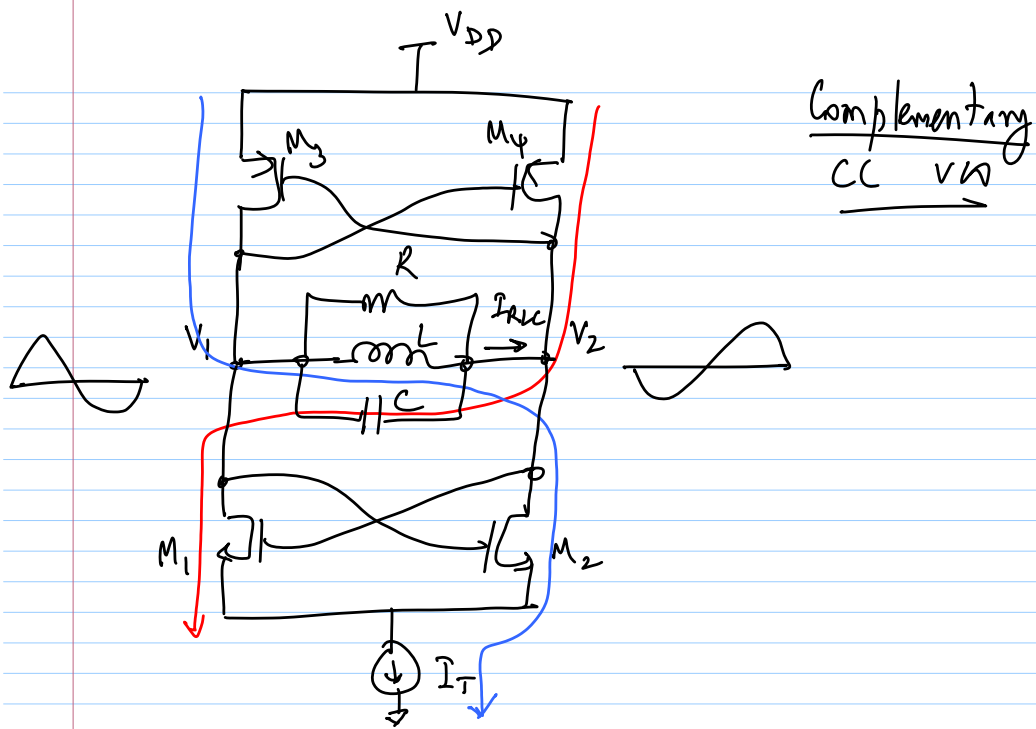 V_DD
Complementary
CC VCO
M_3
M_4
R
I_RLC
V_1
L
V_2
C
M_1
M_2
I_T